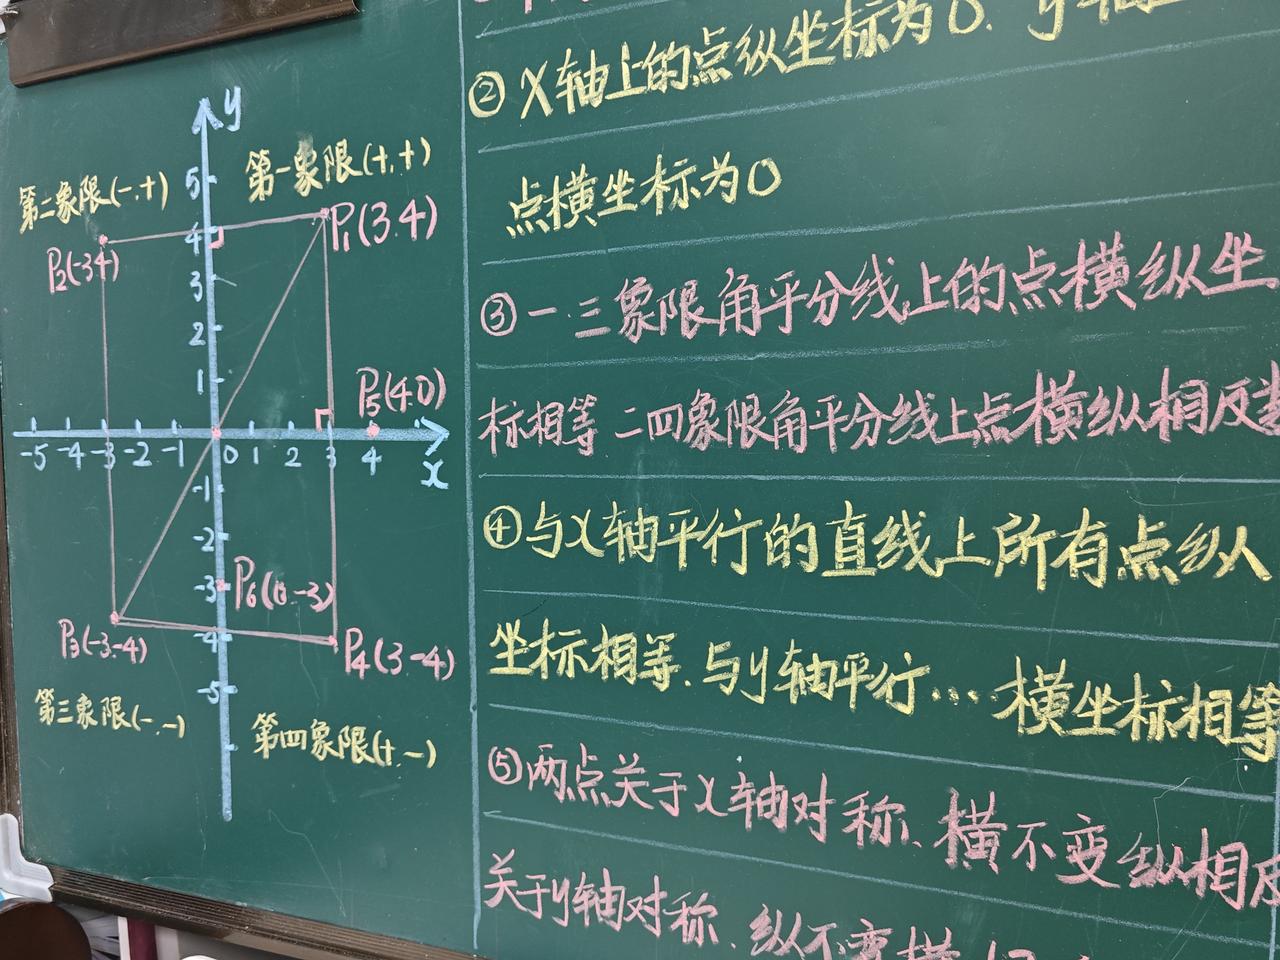 y
第一象限(+,+)
第二象限(-,+)
5
P₁(3.4)
4
P₂(-34)
3
2
1
P₅(4.0)
-5 -4 -3 -2 -1 0 1 2 3 4
x
-1
-2
-3
P₆(0.-3)
-4
P₃(-3.-4)
P₄(3-4)
-5
第三象限(-.-)
第四象限(+.-)
②X轴上的点纵坐标为0. y轴上
点横坐标为0
③一.三象限角平分线上的点横纵坐
标相等 二四象限角平分线上点横纵相反
④与X轴平行的直线上所有点纵
坐标相等.与y轴平行...横坐标相等
⑤两点关于X轴对称、横不变纵相反
关于y轴对称.纵不变横